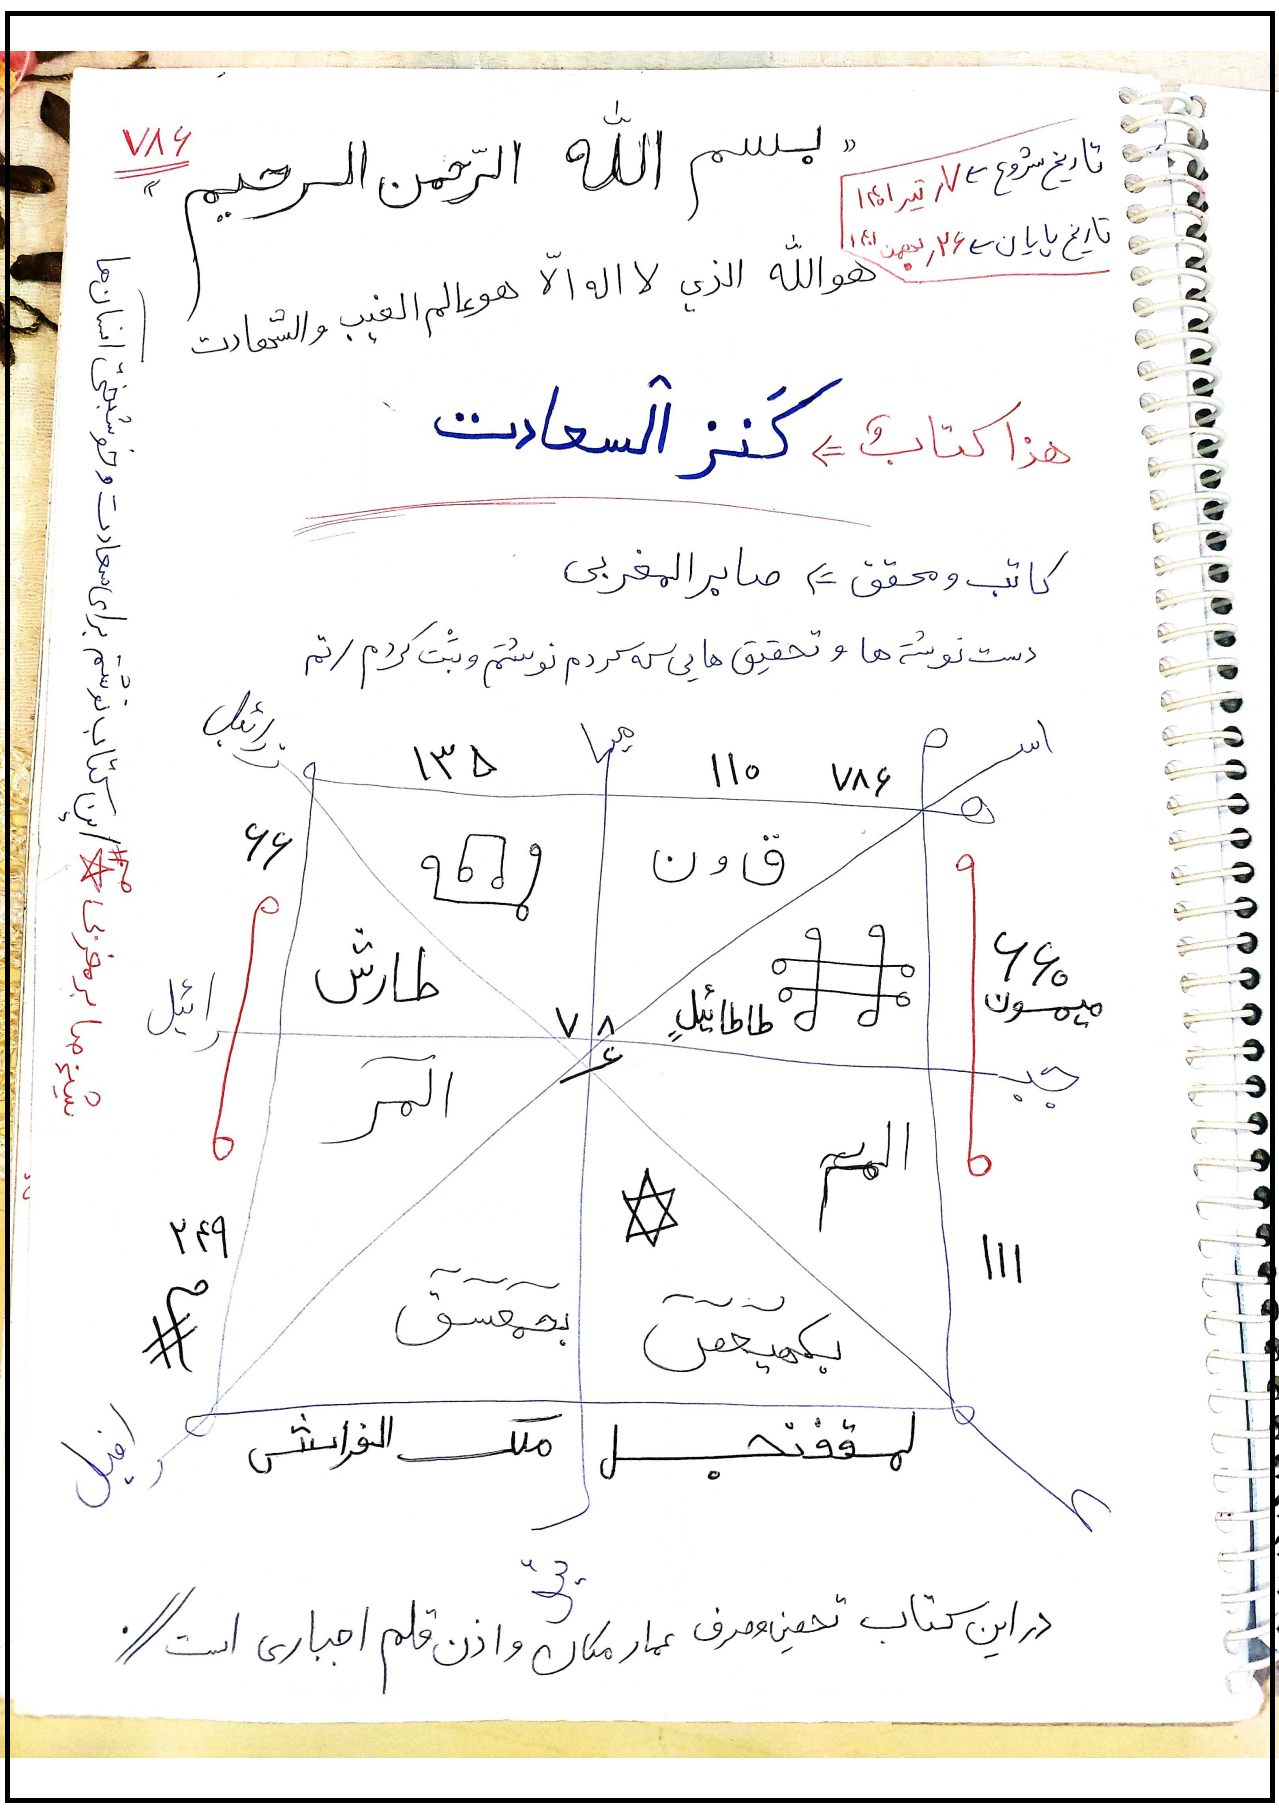 ۷۸۶
« بسم الله الرّحمن الرحیم »
تاریخ شروع ← ۷ ر تیر ۱۴۰۱
تاریخ پایان ← ۲۶ ر بهمن ۱۴۰۱
هوالله الذي لا اله الّا هو عالم الغیب و الشهادت
هذا کتابُ ⇐ کَنز السعادت
کاتب و محقق ⇐ صابر المغربی
دست نوشته ها و تحقیق هایی که کردم نوشتم و ثبت کردم
این کتاب نوشتم برای سعادت و خوشبختی انسان ها
شیخ صابر مغربی
رائیل
میـ
اسـ
۱۳۵
۱۱۰
۷۸۶
۶۶
ق و ن
طارش
طاطائیل
۶۶۰
میمون
رائیل
۷ ۸
۶
جبـ
المر
۲۴۹
۱۱۱
بحمعسق
بکهیعص
رافیل
ملک الفراش
لمقفنجل
در این کتاب تحصین و صرف عمار مکان و اذن قلم اجباری است //.